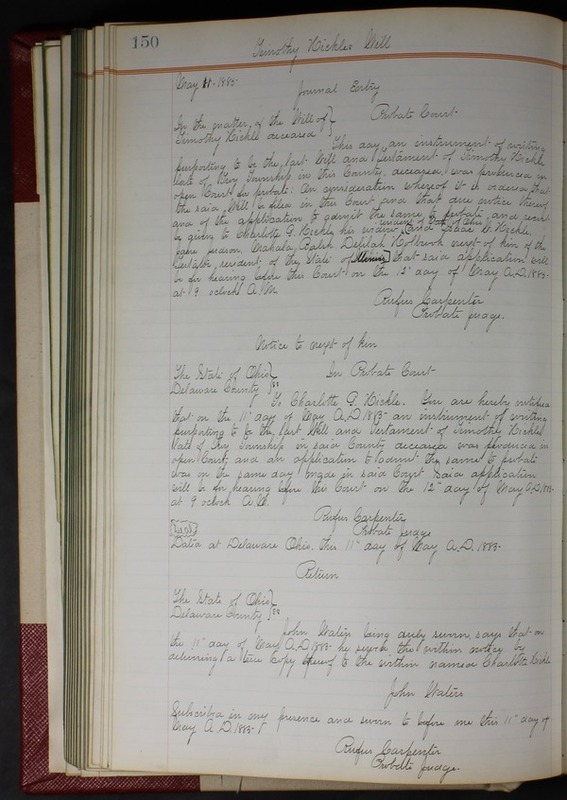 150
Timothy Hickles Will
May 11-1883-
Journal Entry
In the matter of the Will of } Probate Court
Timothy Hickle deceased }
This day an instrument of writing
purporting to be the last Will and Testament of Timothy Hickle
late of Troy Township in this County, deceased, was produced in
open Court for probate: On consideration whereof it is ordered that
the said Will be filed in this Court and that due notice thereof
and of the application to admit the same to probate and
be given to Charlotte G. Hickle his widow, and Isaac W. Hickle
resident of State of Ohio
Jane Delilah Holbrook next of kin of the
testator, resident of the State of Illinois that said application will
be for hearing before this Court on the 12" day of May A.D. 1883-
at 9 oclock A.M.
Rufus Carpenter
Probate judge.
Notice to next of kin
The State of Ohio } In Probate Court
Delaware County } ss
To Charlotte G. Hickle. You are hereby notified
that on the 11" day of May A.D 1883- an instrument of writing
purporting to be the last Will and Testament of Timothy Hickle
late of Troy Township in said County deceased was produced in
open Court and an application to admit the same to probate
was on the same day made in said Court Said application
will be for hearing before this Court on the 12" day of May A.D. 1883-
at 9 oclock A.M.
Rufus Carpenter
Probate judge
Seal
Dated at Delaware Ohio, this 11" day of May A.D. 1883-
Return
The State of Ohio }
Delaware County } ss
John Waters being duly sworn, says that on
the 11" day of May A.D 1883- he served the within notice by
delivering a true copy thereof to the within named Charlotte Hickle
John Waters
Subscribed in my presence and sworn to before me this 11" day of
May A.D. 1883-
Rufus Carpenter
Probate judge.